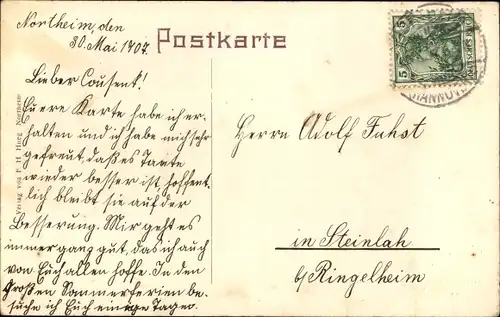 Northeim, den
30. Mai 1907.
Postkarte
Lieber Cousent!
Euere Karte habe ich er-
halten und ich habe mich sehr
gefreut, daß es Tante
wieder besser ist, hoffent-
lich bleibt sie auf der
Besserung. Mir geht es
immer ganz gut, das ich auch
von Euch allen hoffe. In den
Großen Sommerferien be-
suche ich Euch einige Tage.
Verlag von F. H. Northeim
5 5
HANNOV
Herrn Adolf Fuhst
in Steinlah
b/Ringelheim